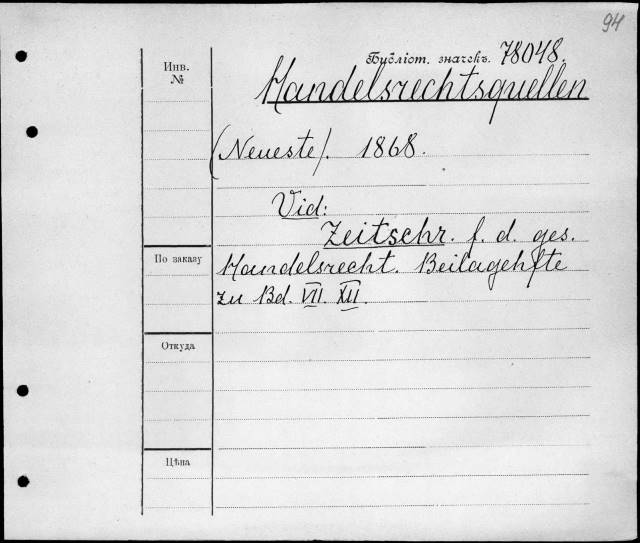 94
Библіот. значекъ. 78048.
Инв.
№
Handelsrechtsquellen
(Neueste). 1868.
Vid:
Zeitschr. f. d. ges.
По заказу
Handelsrecht. Beilagehfte
zu Bd. VII. XII.
Откуда
Цѣна